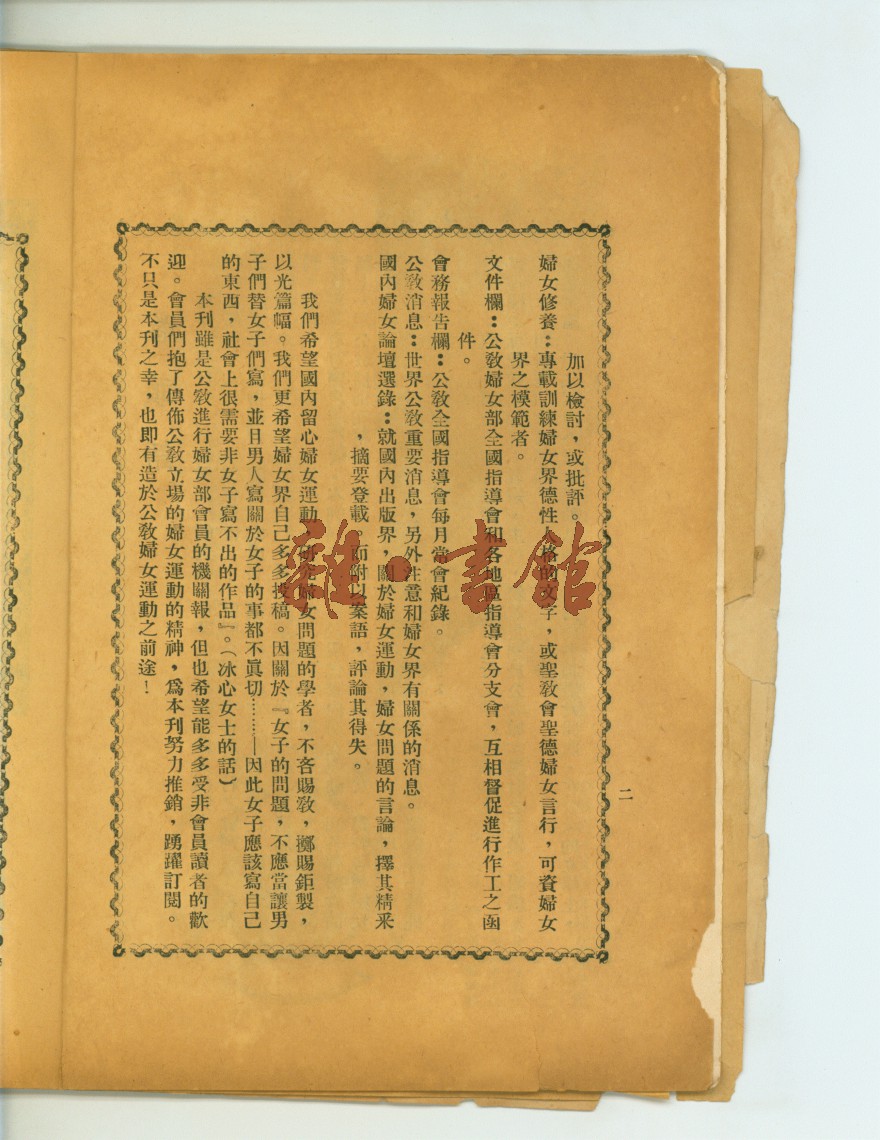 二
加以檢討，或批評。
婦女修養：專載訓練婦女界德性人格的文字，或聖敎會聖德婦女言行，可資婦女
界之模範者。
文件欄：公敎婦女部全國指導會和各地區指導會分支會，互相督促進行作工之函
件。
會務報告欄：公敎全國指導會每月常會紀錄。
公敎消息：世界公敎重要消息，另外注意和婦女界有關係的消息。
國內婦女論壇選錄：就國內出版界，關於婦女運動，婦女問題的言論，擇其精采
，摘要登載 而附以案語，評論其得失。
我們希望國內留心婦女運動 研究婦女問題的學者，不吝賜敎，擲賜鉅製，
以光篇幅。我們更希望婦女界自己多多投稿。因關於『女子的問題，不應當讓男
子們替女子們寫，並且男人寫關於女子的事都不眞切………—因此女子應該寫自己
的東西，社會上很需要非女子寫不出的作品』。（冰心女士的話）
本刊雖是公敎進行婦女部會員的機關報，但也希望能多多受非會員讀者的歡
迎。會員們抱了傳佈公敎立場的婦女運動的精神，爲本刊努力推銷，踴躍訂閱。
不只是本刊之幸，也即有造於公敎婦女運動之前途！
雜·書館